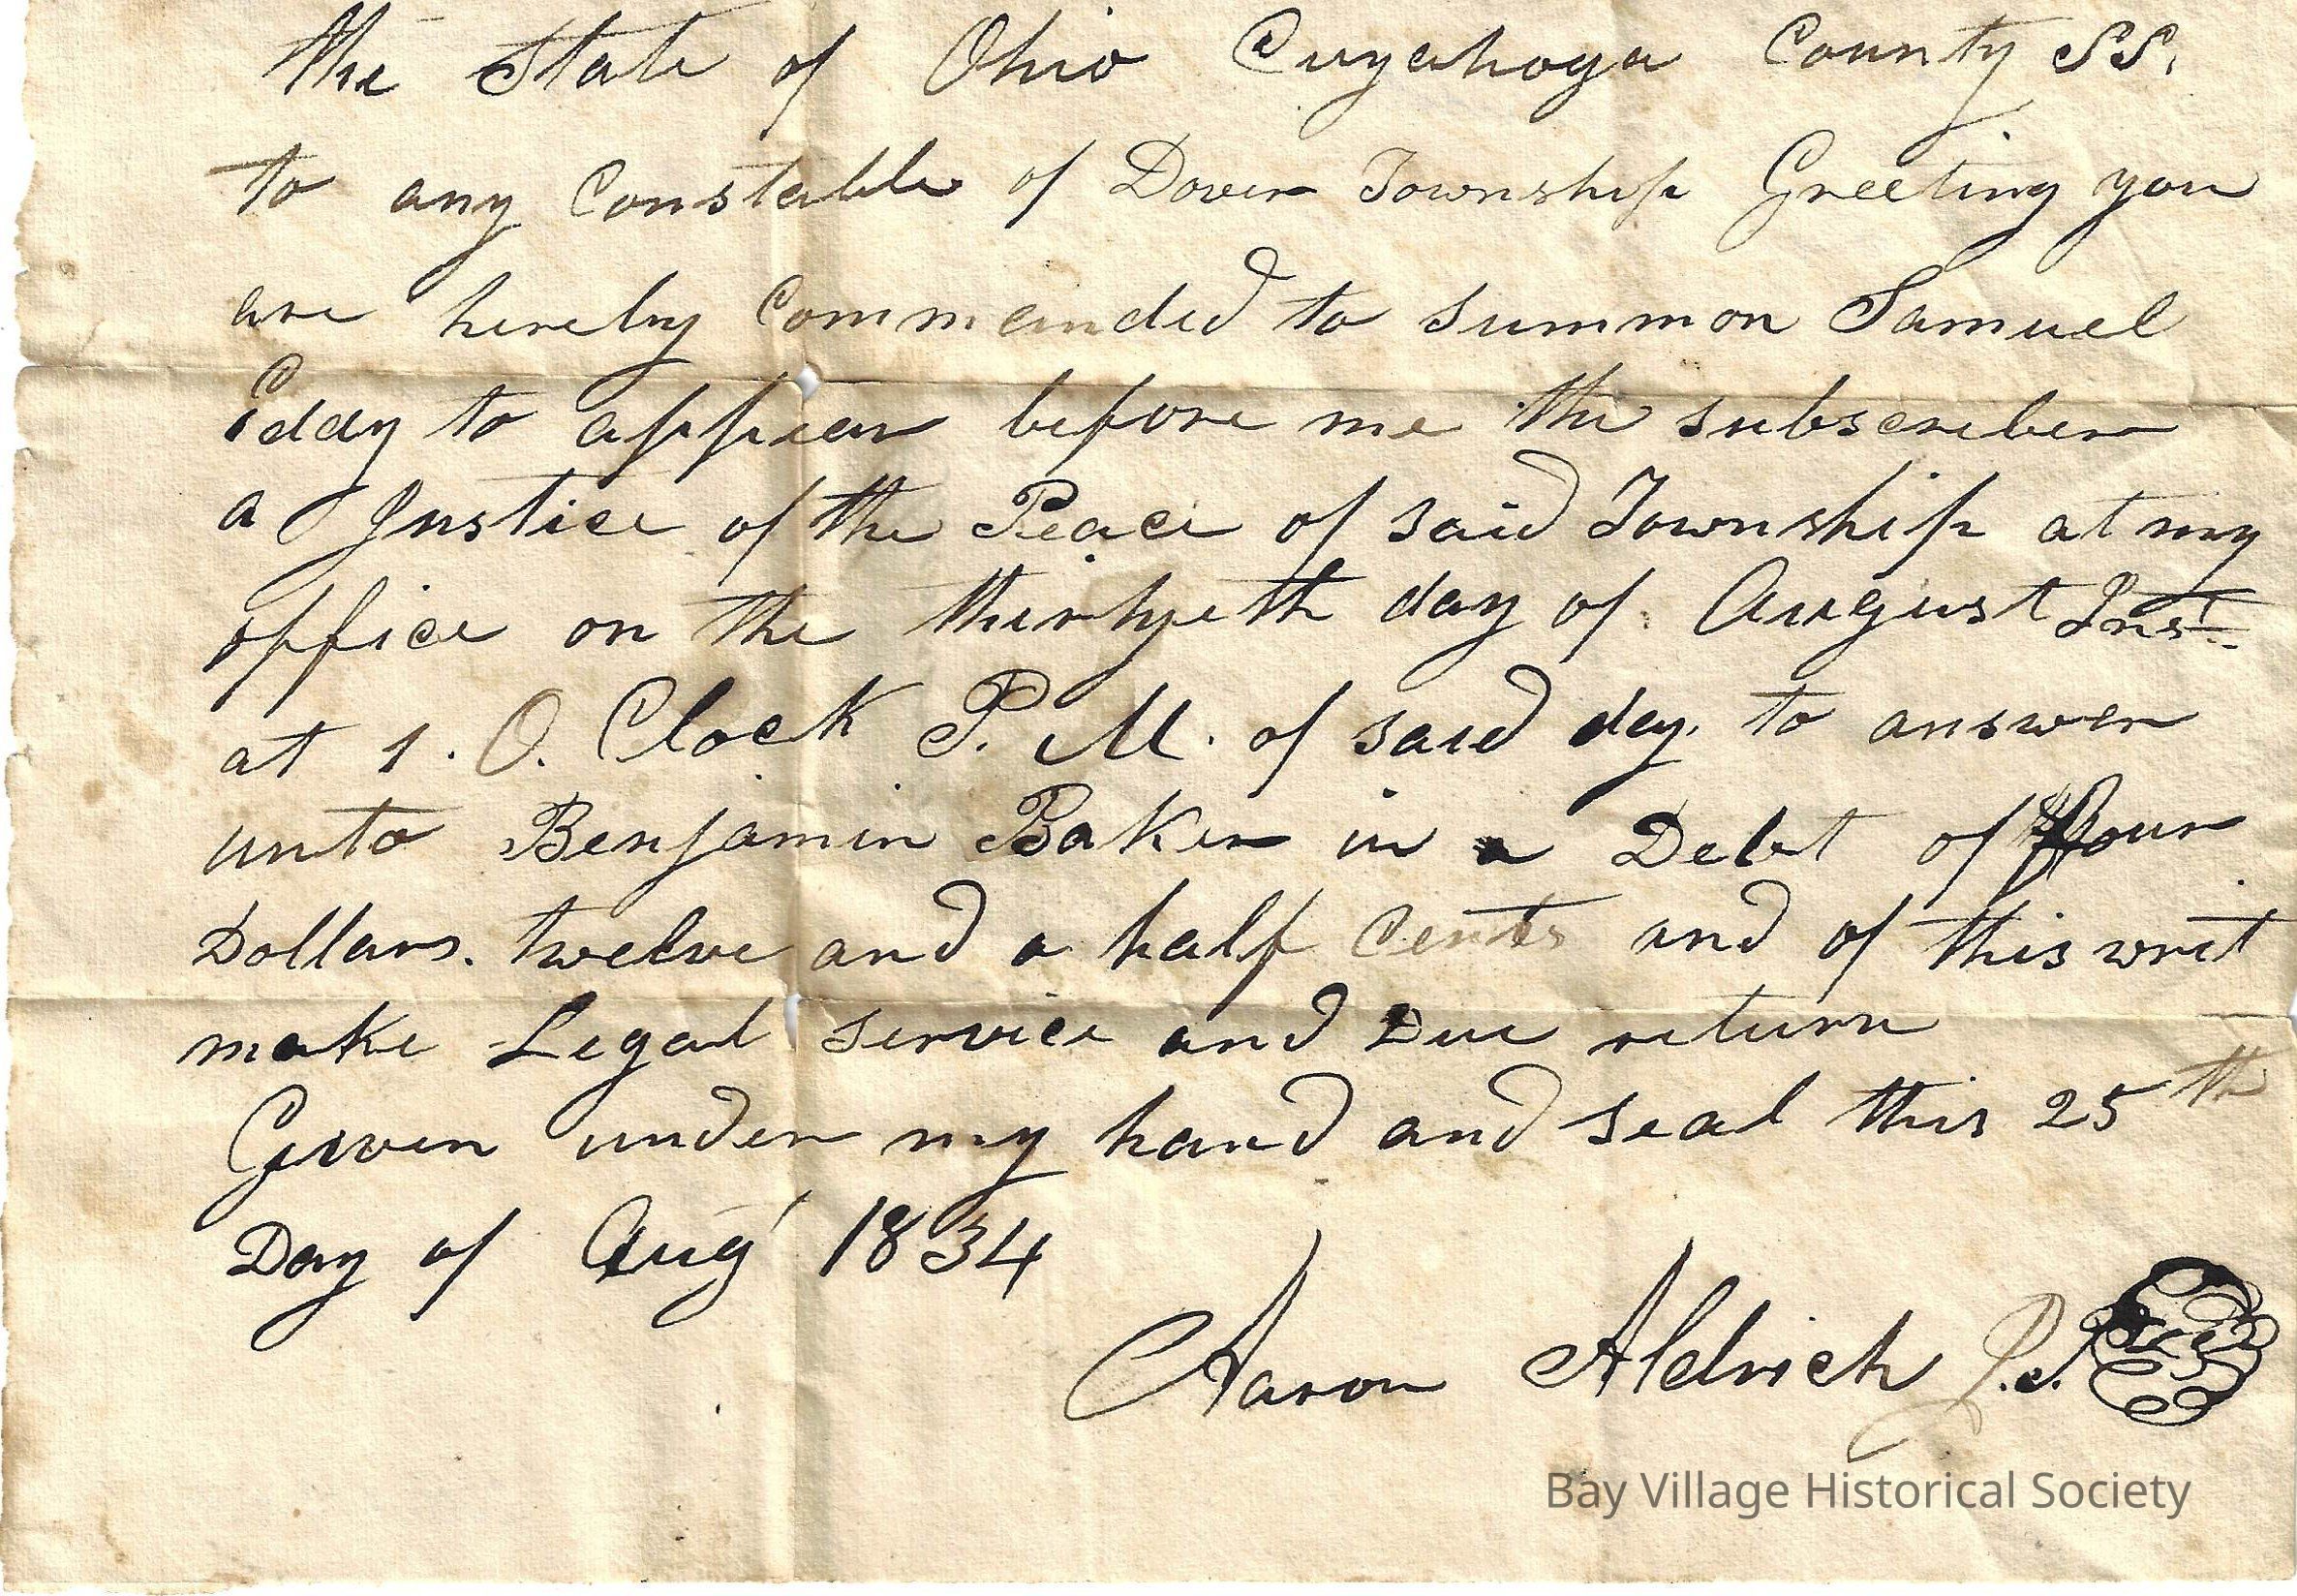 The State of Ohio Cuyahoga County SS.
to any Constable of Dover Township Greeting you
are hereby Commanded to summon Samuel
Eddy to appear before me the subscriber
a Justice of the Peace of said Township at my
office on the thirtyeth day of August Inst.
at 1. O. Clock P. M. of said day. to answer
unto Benjamin Baker in a Debt of four
Dollars. twelve and a half Cents and of this writ
make Legal service and Due return
Given under my hand and seal this 25th
Day of Aug 1834
Aaron Aldrich J.P. Seal
Bay Village Historical Society